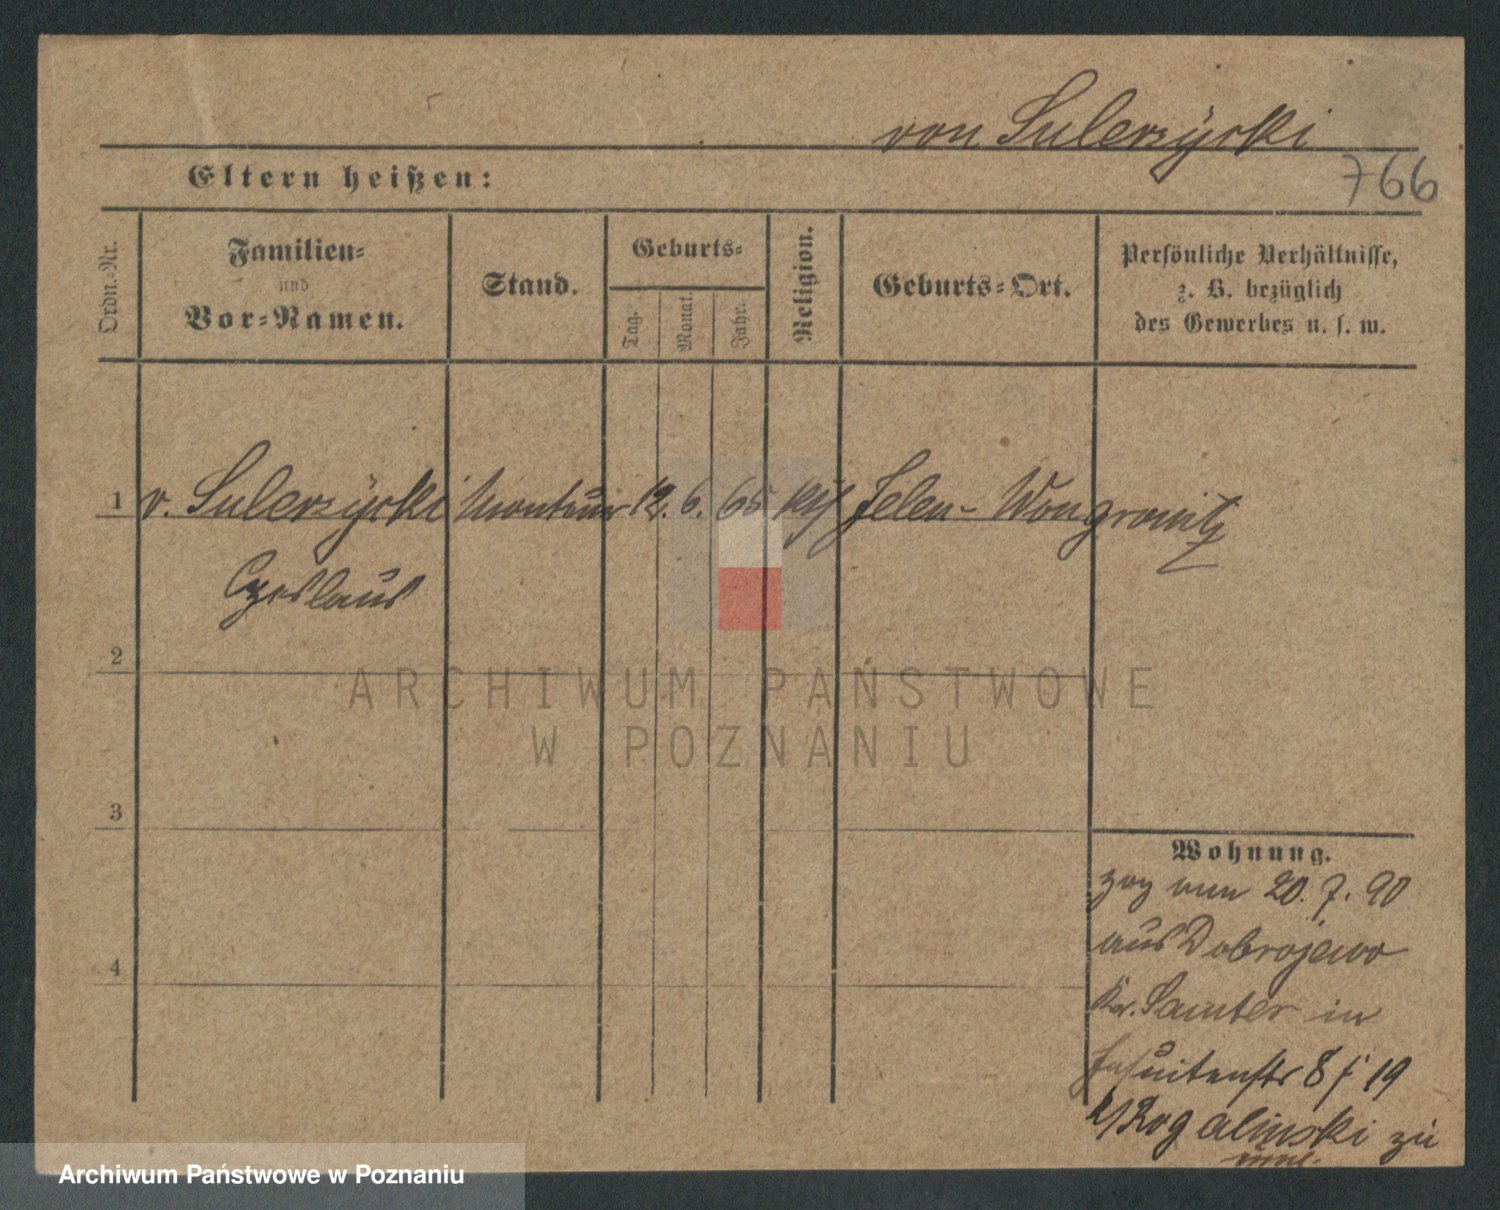 von Sulerzÿcki
766
Eltern heißen:
Ordn.-Nr.
Familien-
und
Vor-Namen.
Stand.
Geburts-
Tag.
Monat.
Jahr.
Religion.
Geburts-Ort.
Persönliche Verhältnisse,
z. B. bezüglich
des Gewerbes u. s. w.
1 v. Sulerzÿcki 12. 6. 65 kth Jelen- Wongrowitz
Czeslaus
2
ARCHIWUM PAŃSTWOWE
W POZNANIU
3
Wohnung.
zog am 20. 7. 90
aus Dobrojewo
Kr. Samter in
Jesuitenstr 8 f 19
b/ Rogalinski zu
4
Archiwum Państwowe w Poznaniu